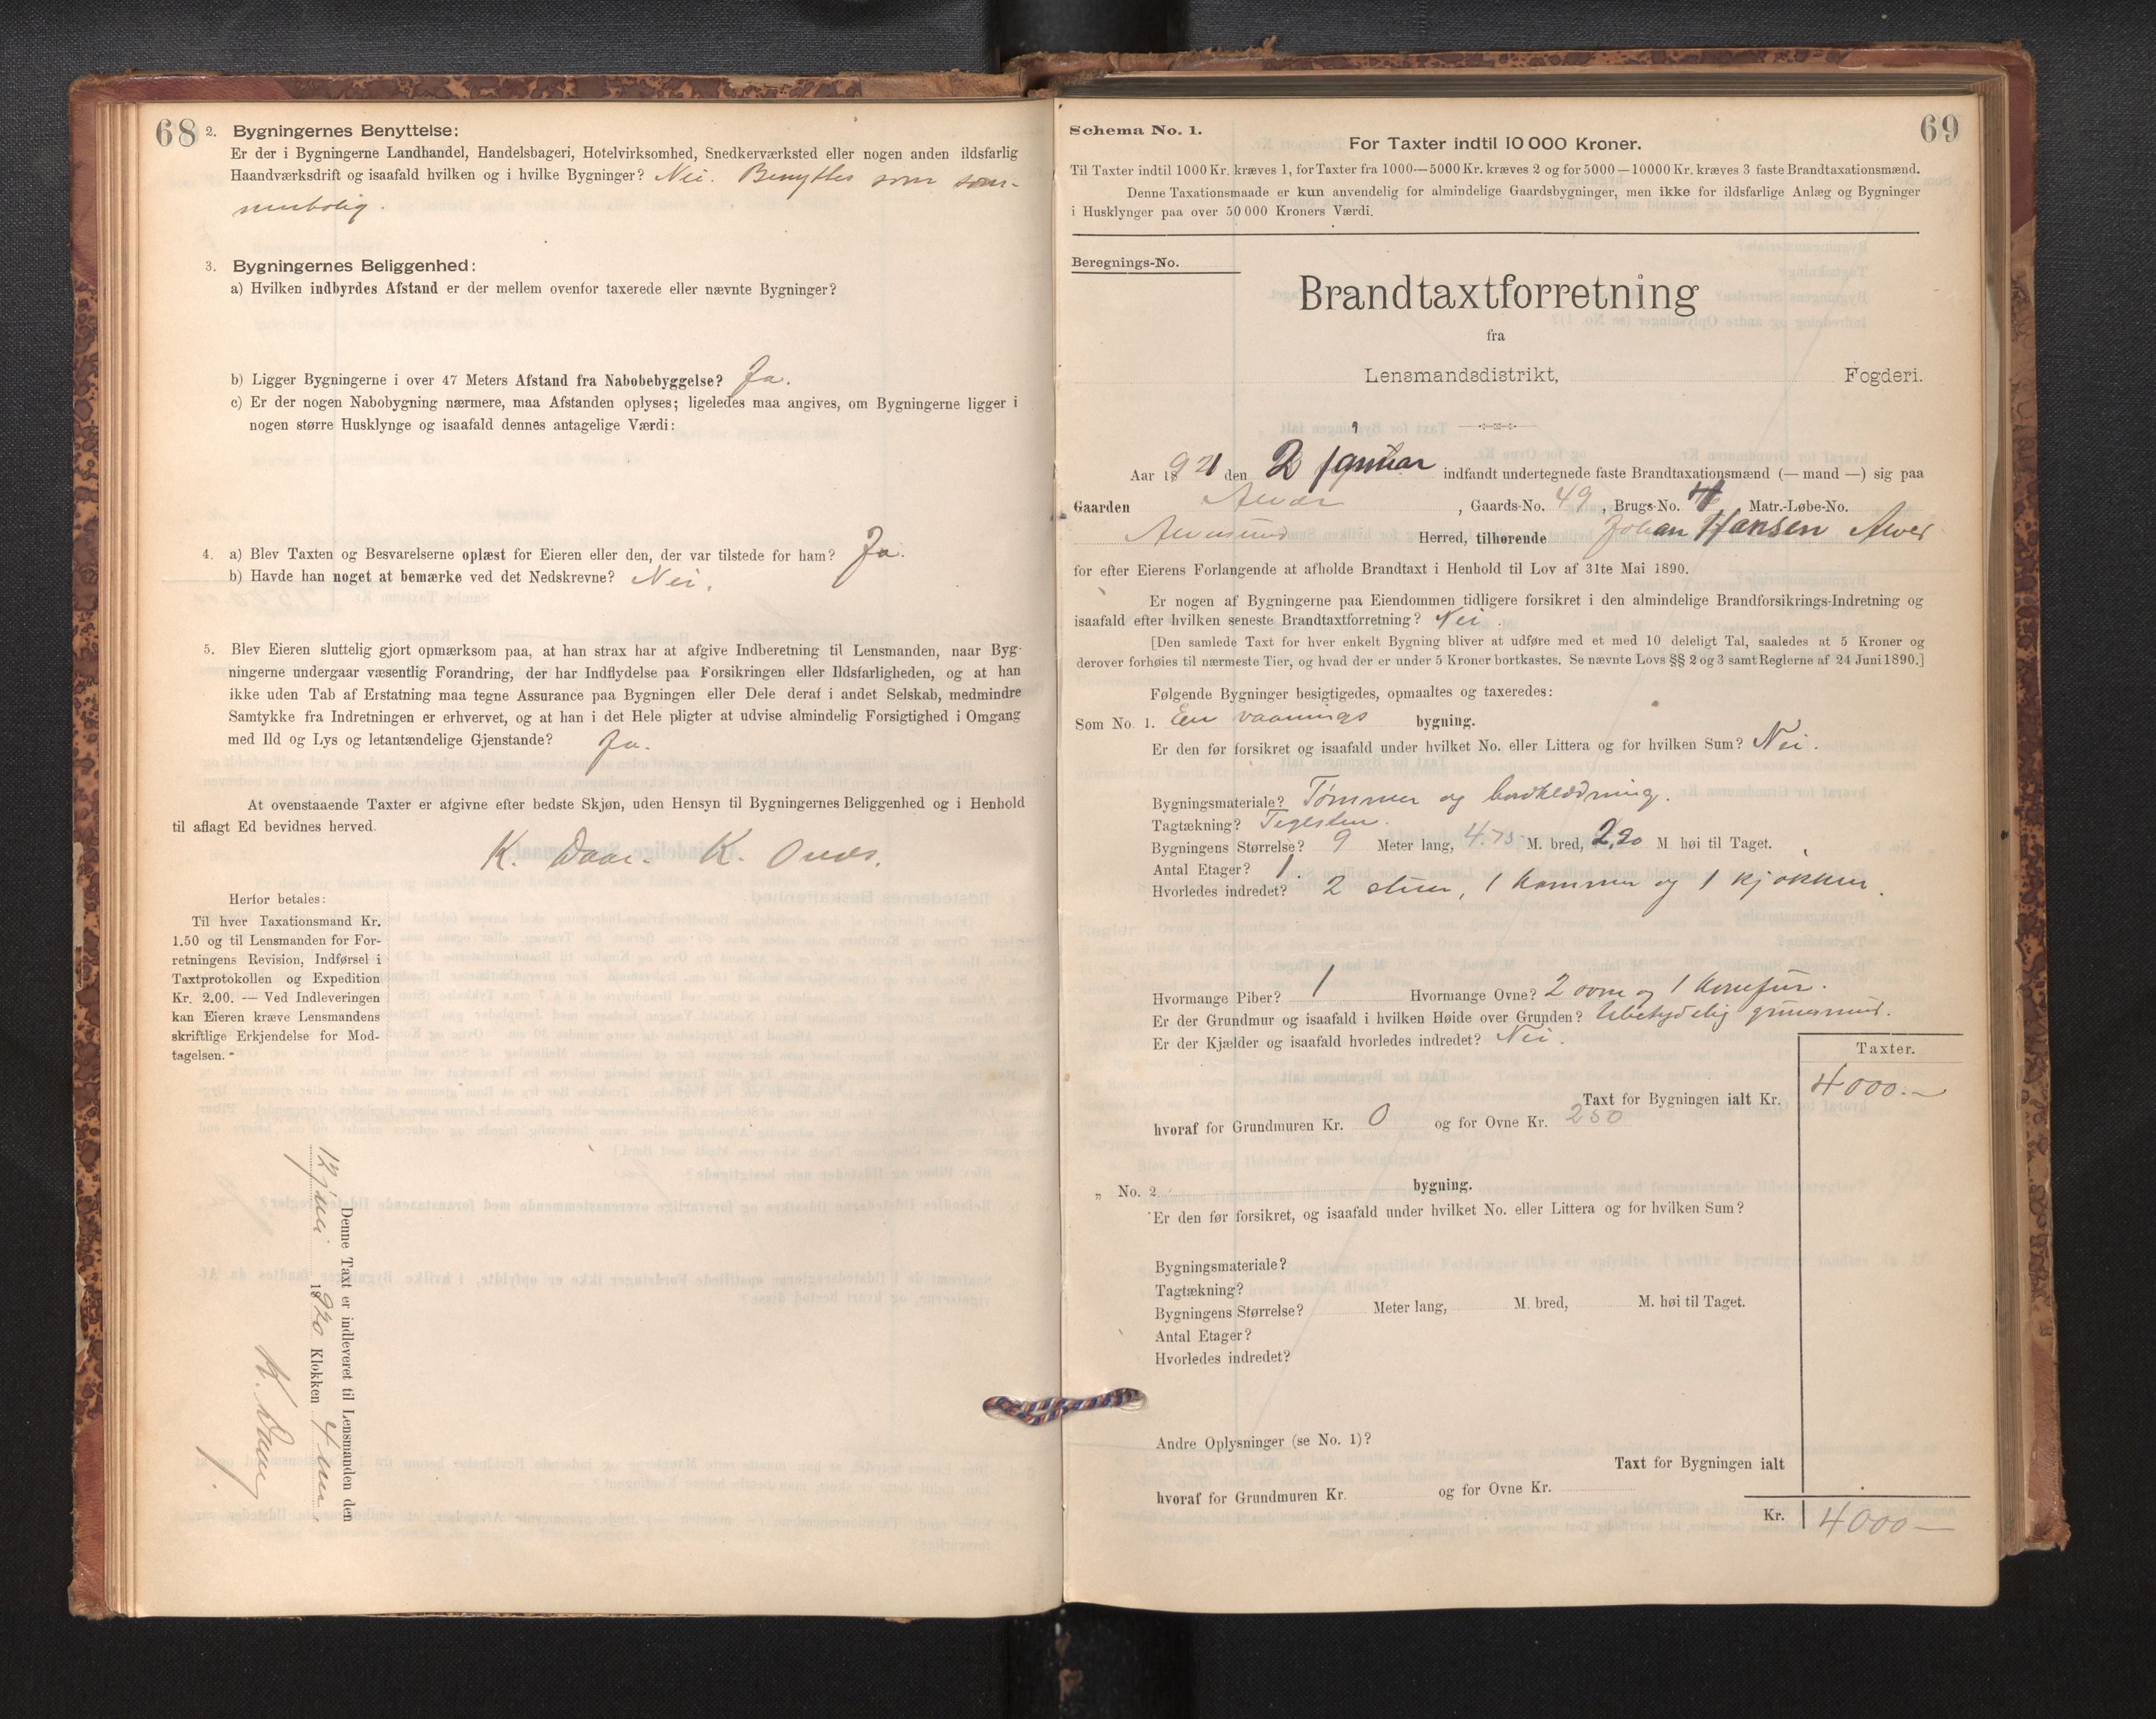 68
2. Bygningernes Benyttelse:
Er der i Bygningerne Landhandel, Handelsbageri, Hotelvirksomhed, Snedkerværksted eller nogen anden ildsfarlig
Haandværksdrift og isaafald hvilken og i hvilke Bygninger? Nei. Benyttes som som-
merbolig.
3. Bygningernes Beliggenhed:
a) Hvilken indbyrdes Afstand er der mellem ovenfor taxerede eller nævnte Bygninger?
b) Ligger Bygningerne i over 47 Meters Afstand fra Nabobebyggelse? Ja.
c) Er der nogen Nabobygning nærmere, maa Afstanden oplyses; ligeledes maa angives, om Bygningerne ligger i
nogen større Husklynge og isaafald dennes antagelige Værdi:
4. a) Blev Taxten og Besvarelserne oplæst for Eieren eller den, der var tilstede for ham? Ja.
b) Havde han noget at bemærke ved det Nedskrevne? Nei.
5. Blev Eieren sluttelig gjort opmærksom paa, at han strax har at afgive Indberetning til Lensmanden, naar Byg-
ningerne undergaar væsentlig Forandring, der har Indflydelse paa Forsikringen eller Ildsfarligheden, og at han
ikke uden Tab af Erstatning maa tegne Assurance paa Bygningen eller Dele deraf i andet Selskab, medmindre
Samtykke fra Indretningen er erhvervet, og at han i det Hele pligter at udvise almindelig Forsigtighed i Omgang
med Ild og Lys og letantændelige Gjenstande? Ja.
At ovenstaaende Taxter er afgivne efter bedste Skjøn, uden Hensyn til Bygningernes Beliggenhed og i Henhold
til aflagt Ed bevidnes herved.
K. Daae. K.
Herfor betales:
Til hver Taxationsmand Kr.
1.50 og til Lensmanden for For-
retningens Revision, Indførsel i
Taxtprotokollen og Expedition
Kr. 2.00. — Ved Indleveringen
kan Eieren kræve Lensmandens
skriftlige Erkjendelse for Mod-
tagelsen.
Denne Taxt er indleveret til Lensmanden den
12 juni 1920 Klokken 4 em
K. Daae
69
Schema No. 1.
For Taxter indtil 10 000 Kroner.
Til Taxter indtil 1000 Kr. kræves 1, for Taxter fra 1000—5000 Kr. kræves 2 og for 5000—10000 Kr. kræves 3 faste Brandtaxationsmænd.
Denne Taxationsmaade er kun anvendelig for almindelige Gaardsbygninger, men ikke for ildsfarlige Anlæg og Bygninger
i Husklynger paa over 50 000 Kroners Værdi.
Beregnings-No.
Brandtaxtforretning
fra
Lensmandsdistrikt, Fogderi.
Aar 1921 den 2 januar indfandt undertegnede faste Brandtaxationsmænd (— mand —) sig paa
Gaarden Alver, Gaards-No. 49, Brugs-No. Matr.-Løbe-No.
Alversund Herred, tilhørende Johan Hansen Alver
for efter Eierens Forlangende at afholde Brandtaxt i Henhold til Lov af 31te Mai 1890.
Er nogen af Bygningerne paa Eiendommen tidligere forsikret i den almindelige Brandforsikrings-Indretning og
isaafald efter hvilken seneste Brandtaxtforretning? Nei.
[Den samlede Taxt for hver enkelt Bygning bliver at udføre med et med 10 deleligt Tal, saaledes at 5 Kroner og
derover forhøies til nærmeste Tier, og hvad der er under 5 Kroner bortkastes. Se nævnte Lovs §§ 2 og 3 samt Reglerne af 24 Juni 1890.]
Følgende Bygninger besigtigedes, opmaaltes og taxeredes:
Som No. 1. En vaanings bygning.
Er den før forsikret og isaafald under hvilket No. eller Littera og for hvilken Sum? Nei.
Bygningsmateriale? Tømmer og bordklædning.
Tagtækning? Teglsten.
Bygningens Størrelse? 9 Meter lang, 4.75 M. bred, 2,20 M høi til Taget.
Antal Etager? 1.
Hvorledes indredet? 2 stuer, 1 kammer og 1 kjøkken.
Hvormange Piber? 1 Hvormange Ovne? 2 ovne og 1 komfur.
Er der Grundmur og isaafald i hvilken Høide over Grunden? Ubetydelig grunnmur.
Er der Kjælder og isaafald hvorledes indredet? Nei.
Taxter.
Taxt for Bygningen ialt Kr. 4000.—
hvoraf for Grundmuren Kr. 0 og for Ovne Kr. 250
„ No. 2 bygning.
Er den før forsikret, og isaafald under hvilket No. eller Littera og for hvilken Sum?
Bygningsmateriale?
Tagtækning?
Bygningens Størrelse? Meter lang, M. bred, M. høi til Taget.
Antal Etager?
Hvorledes indredet?
Andre Oplysninger (se No. 1)?
Taxt for Bygningen ialt
hvoraf for Grundmuren Kr. og for Ovne Kr.
Kr. 4000—